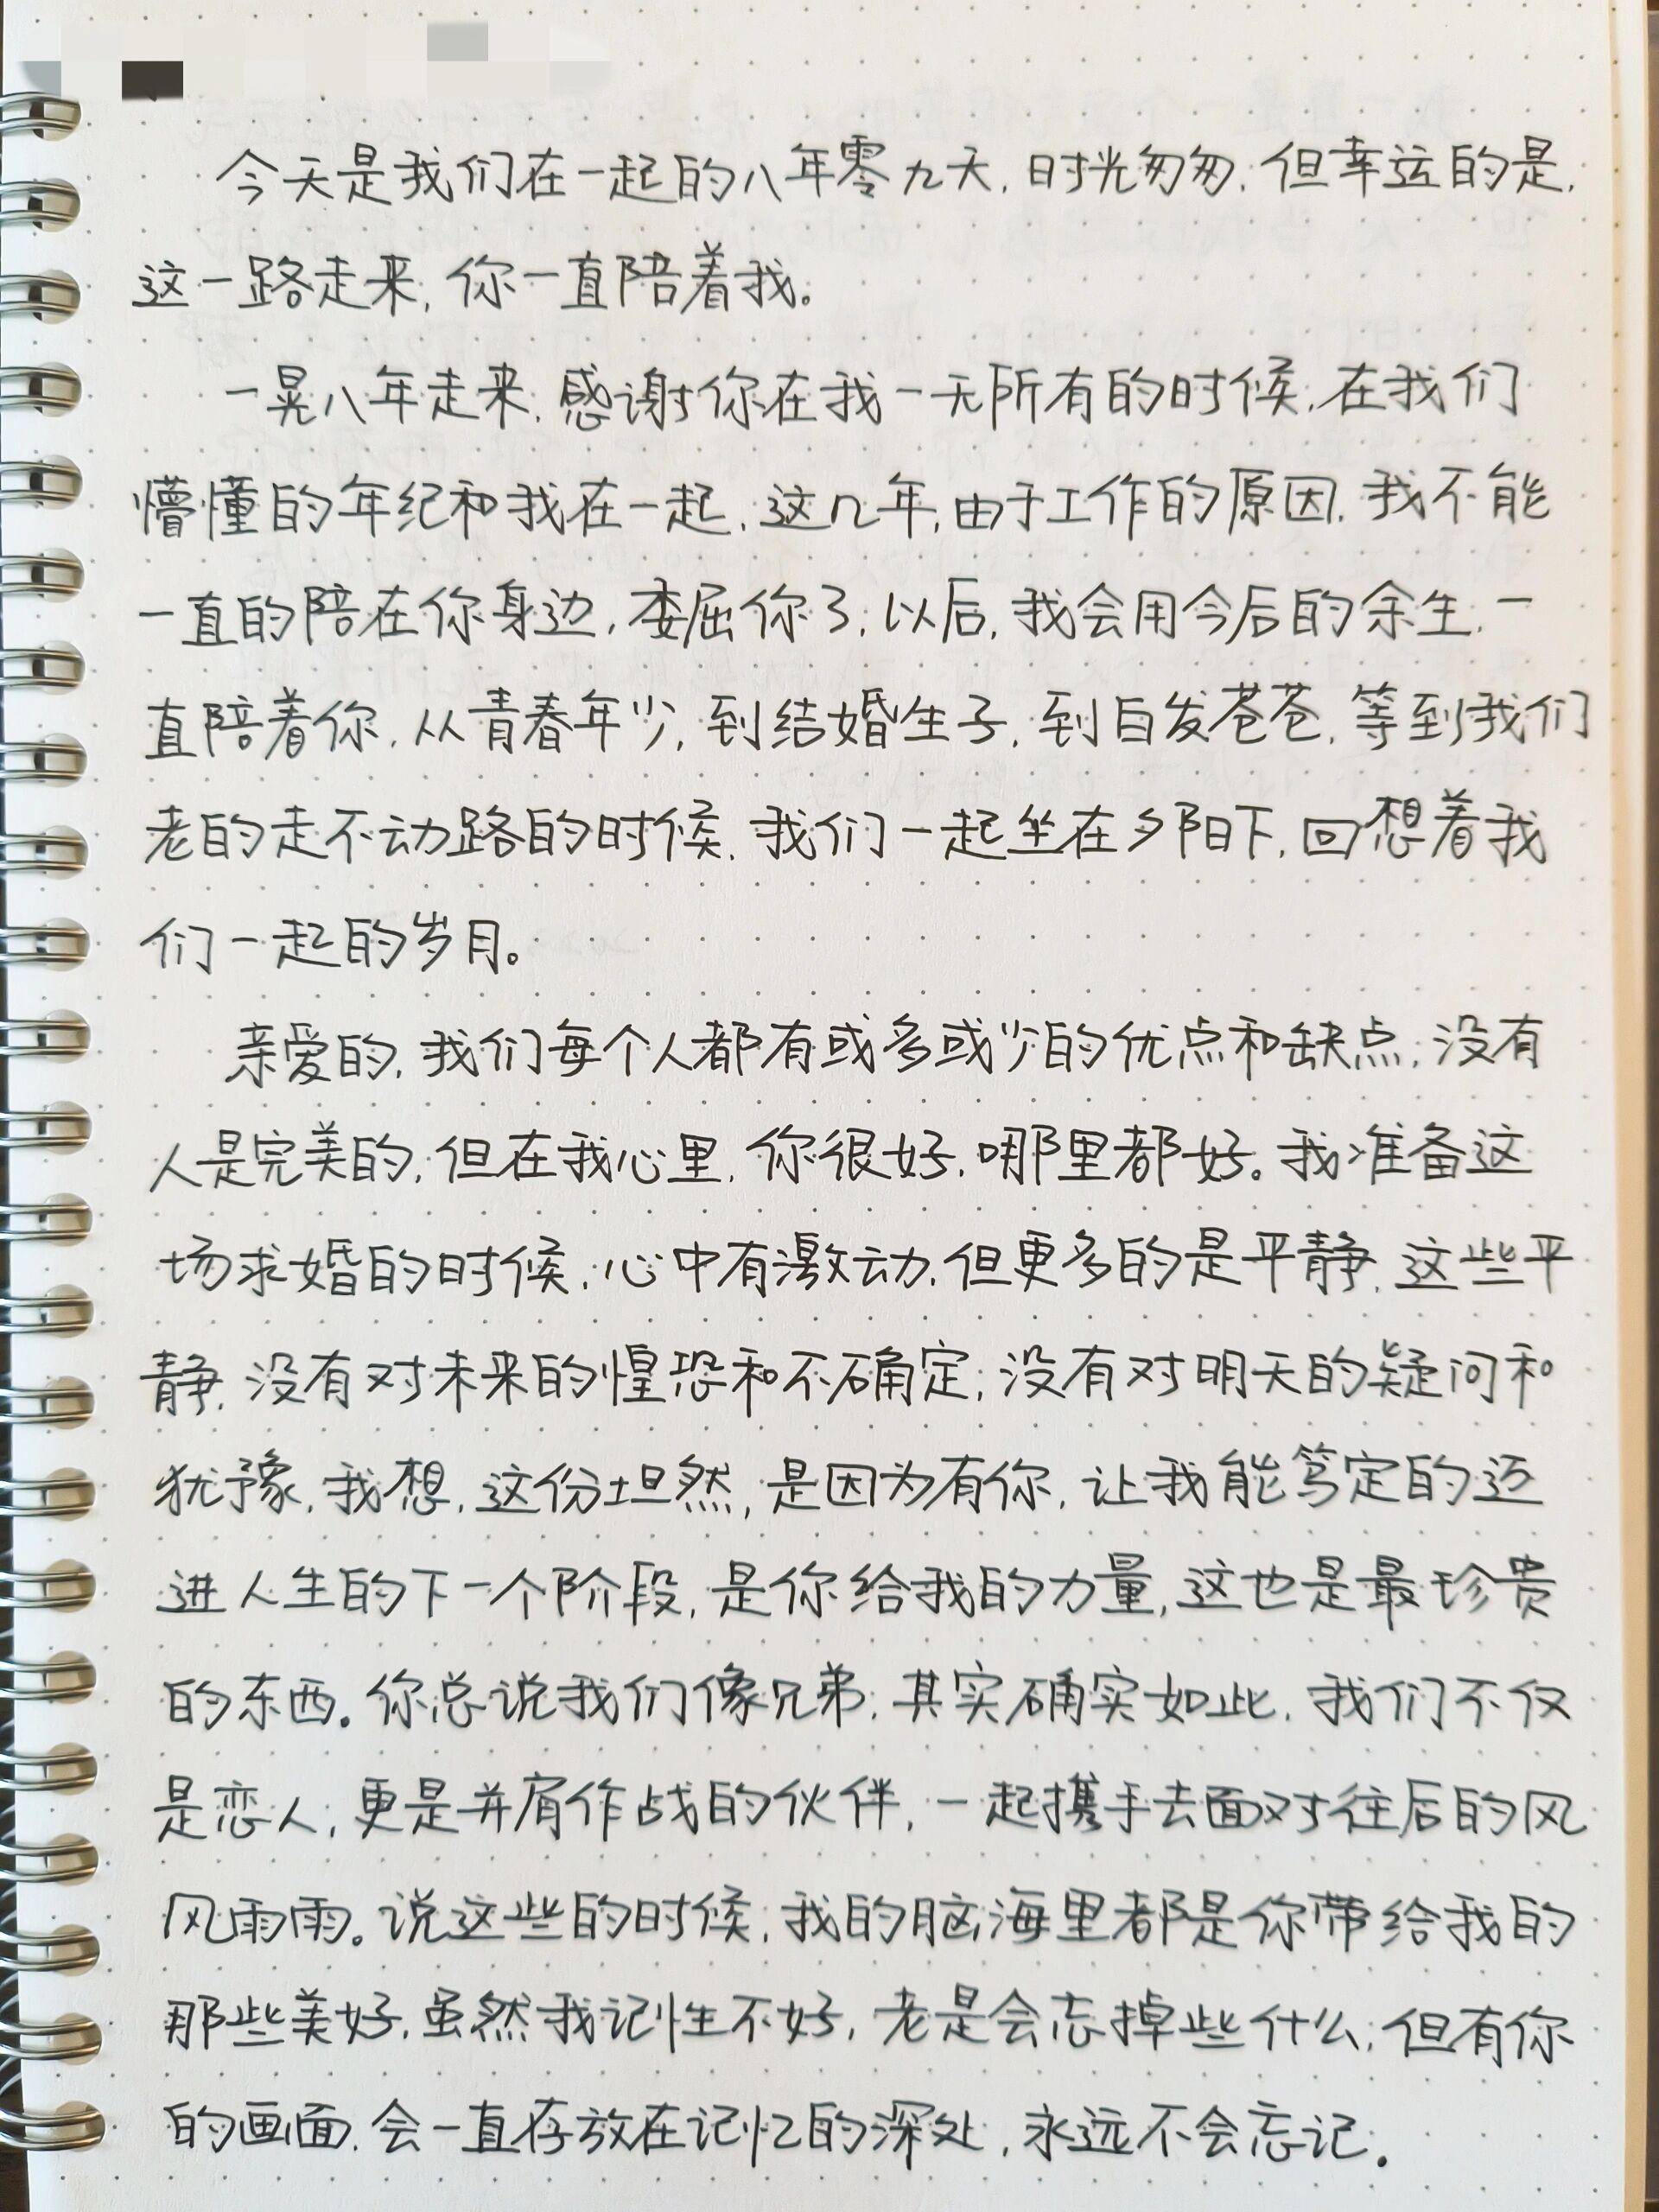 今天是我们在一起的八年零九天,时光匆匆,但幸运的是,
这一路走来,你一直陪着我。
一晃八年走来,感谢你在我一无所有的时候,在我们
懵懂的年纪和我在一起,这几年,由于工作的原因,我不能
一直的陪在你身边,委屈你了,以后,我会用今后的余生,一
直陪着你,从青春年少,到结婚生子,到白发苍苍,等到我们
老的走不动路的时候,我们一起坐在夕阳下,回想着我
们一起的岁月。
亲爱的,我们每个人都有或多或少的优点和缺点,没有
人是完美的,但在我心里,你很好,哪里都好。我准备这
场求婚的时候,心中有激动,但更多的是平静,这些平
静,没有对未来的惶恐和不确定;没有对明天的疑问和
犹豫,我想,这份坦然,是因为有你,让我能笃定的迈
进人生的下一个阶段,是你给我的力量,这也是最珍贵
的东西。你总说我们像兄弟,其实确实如此,我们不仅
是恋人,更是并肩作战的伙伴,一起携手去面对往后的风
风雨雨。说这些的时候,我的脑海里都是你带给我的
那些美好,虽然我记性不好,老是会忘掉些什么,但有你
的画面,会一直存放在记忆的深处,永远不会忘记.